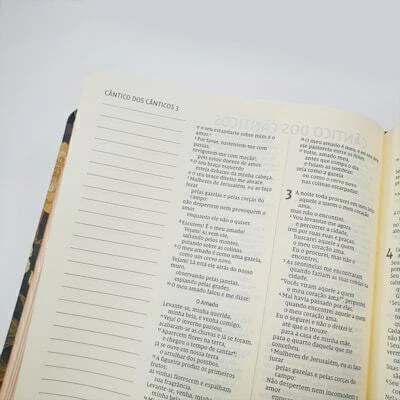 CÂNTICO DOS CÂNTICOS 3
e o seu estandarte sobre mim é o
amor.
5 Por favor, sustentem-me com
passas,
revigorem-me com maçãs,
pois estou doente de amor.
6 O seu braço esquerdo
esteja debaixo da minha cabeça,
e o seu braço direito me abrace.
7 Mulheres de Jerusalém, eu as faço
jurar
pelas gazelas e pelas corças do
campo:
não despertem nem provoquem o
amor
enquanto ele não o quiser.
8 Escutem! É o meu amado!
Vejam! Aí vem ele,
saltando pelos montes,
pulando sobre as colinas.
9 O meu amado é como uma gazela,
como um cervo novo.
Vejam! Lá está ele atrás do nosso
muro,
observando pelas janelas,
espiando pelas grades.
10 O meu amado falou e me disse:
O Amado
Levante-se, minha querida,
minha bela, e venha comigo.
11 Veja! O inverno passou;
acabaram-se as chuvas e já se foram.
12 Aparecem flores na terra,
e chegou o tempo de cantar;
já se ouve em nossa terra
o arrulhar dos pombos.
13 A figueira produz os primeiros
frutos;
as vinhas florescem e espalham
sua fragrância.
Levante-se, venha, minha querida,
minha bela,
16 O meu amado é meu, e eu sou dele;
ele pastoreia entre os lírios.
17 Volte, amado meu,
antes que rompa o dia
e fujam as sombras;
seja como a gazela
ou como o cervo novo
nas colinas escarpadas.
3 A noite toda procurei em meu leito
aquele a quem o meu coração
ama,
mas não o encontrei.
2 Vou levantar-me agora
e percorrer a cidade,
irei por suas ruas e praças;
buscarei aquele a quem
o meu coração ama.
Eu o procurei, mas não o
encontrei.
3 As sentinelas me encontraram
quando faziam as suas rondas
na cidade.
"Vocês viram aquele a quem
o meu coração ama?", perguntei.
4 Mal havia passado por elas,
quando encontrei aquele a quem
o meu coração ama.
Eu o segurei e não o deixei ir,
até que o trouxe
para a casa de minha mãe,
para o quarto daquela que me
concebeu.
5 Mulheres de Jerusalém, eu as faço
jurar
pelas gazelas e pelas corças do
campo:
Não despertem nem incomodem o
amor
4